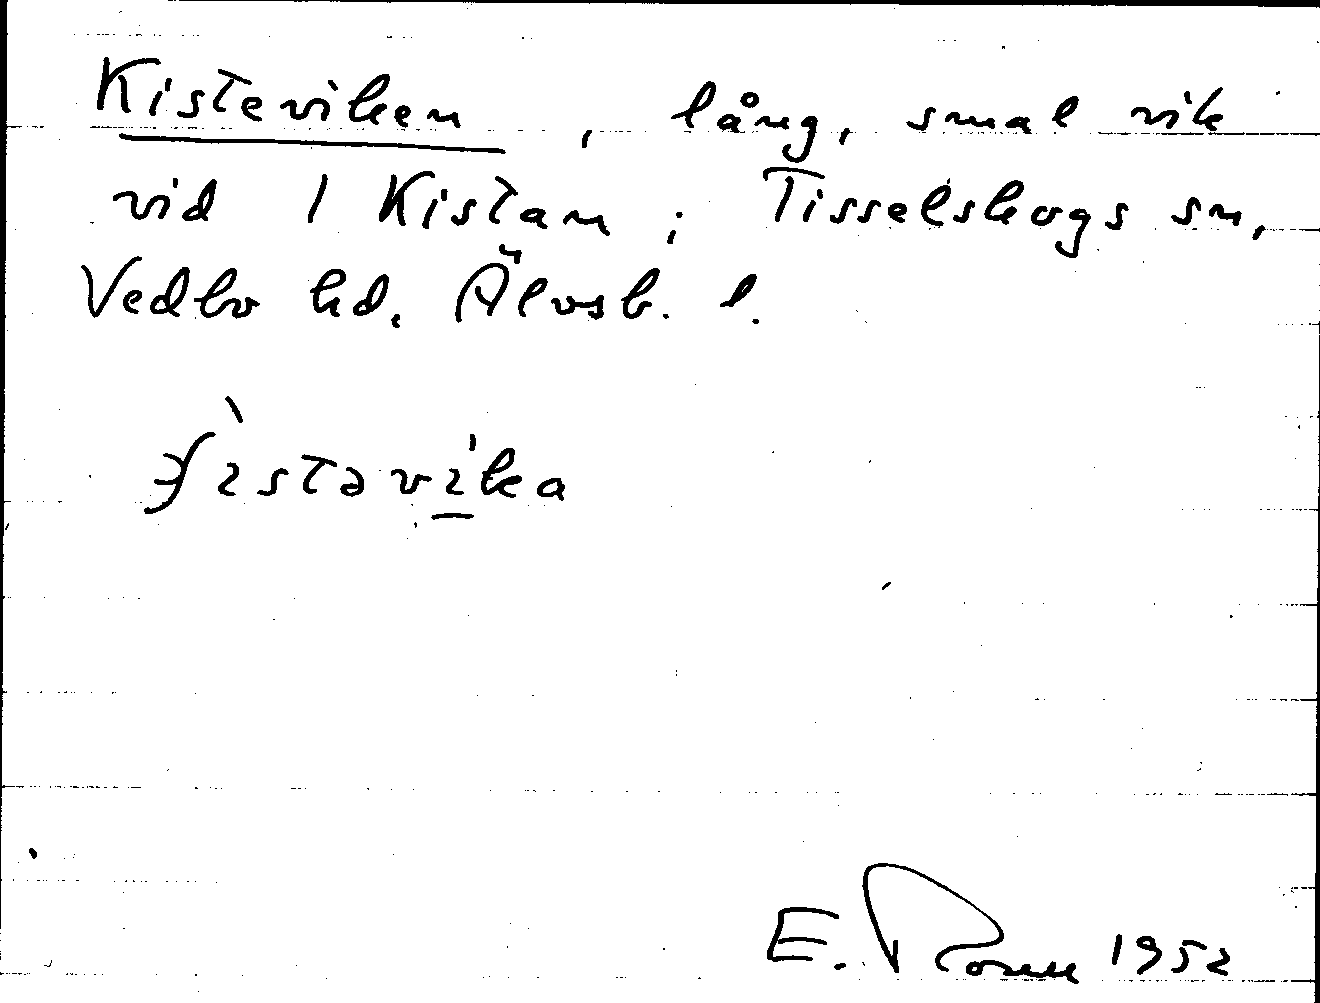 Kisteviken, lång, smal vik
vid 1 Kistan; Tisselskogs sn,
Vedbo hd. Älvsb. l.
E. 1952